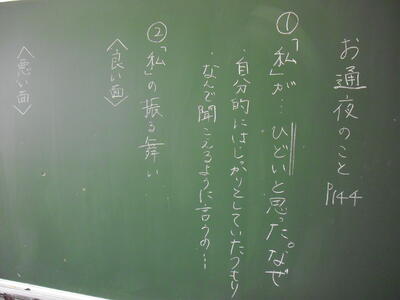 お通夜のこと P144
①「私」が…ひどいと思った。なぜ
・自分的にはしっかりとしていたつもり
・なんで聞こえるように言うの…
②「私」の振る舞い
〈良い面〉
〈悪い面〉